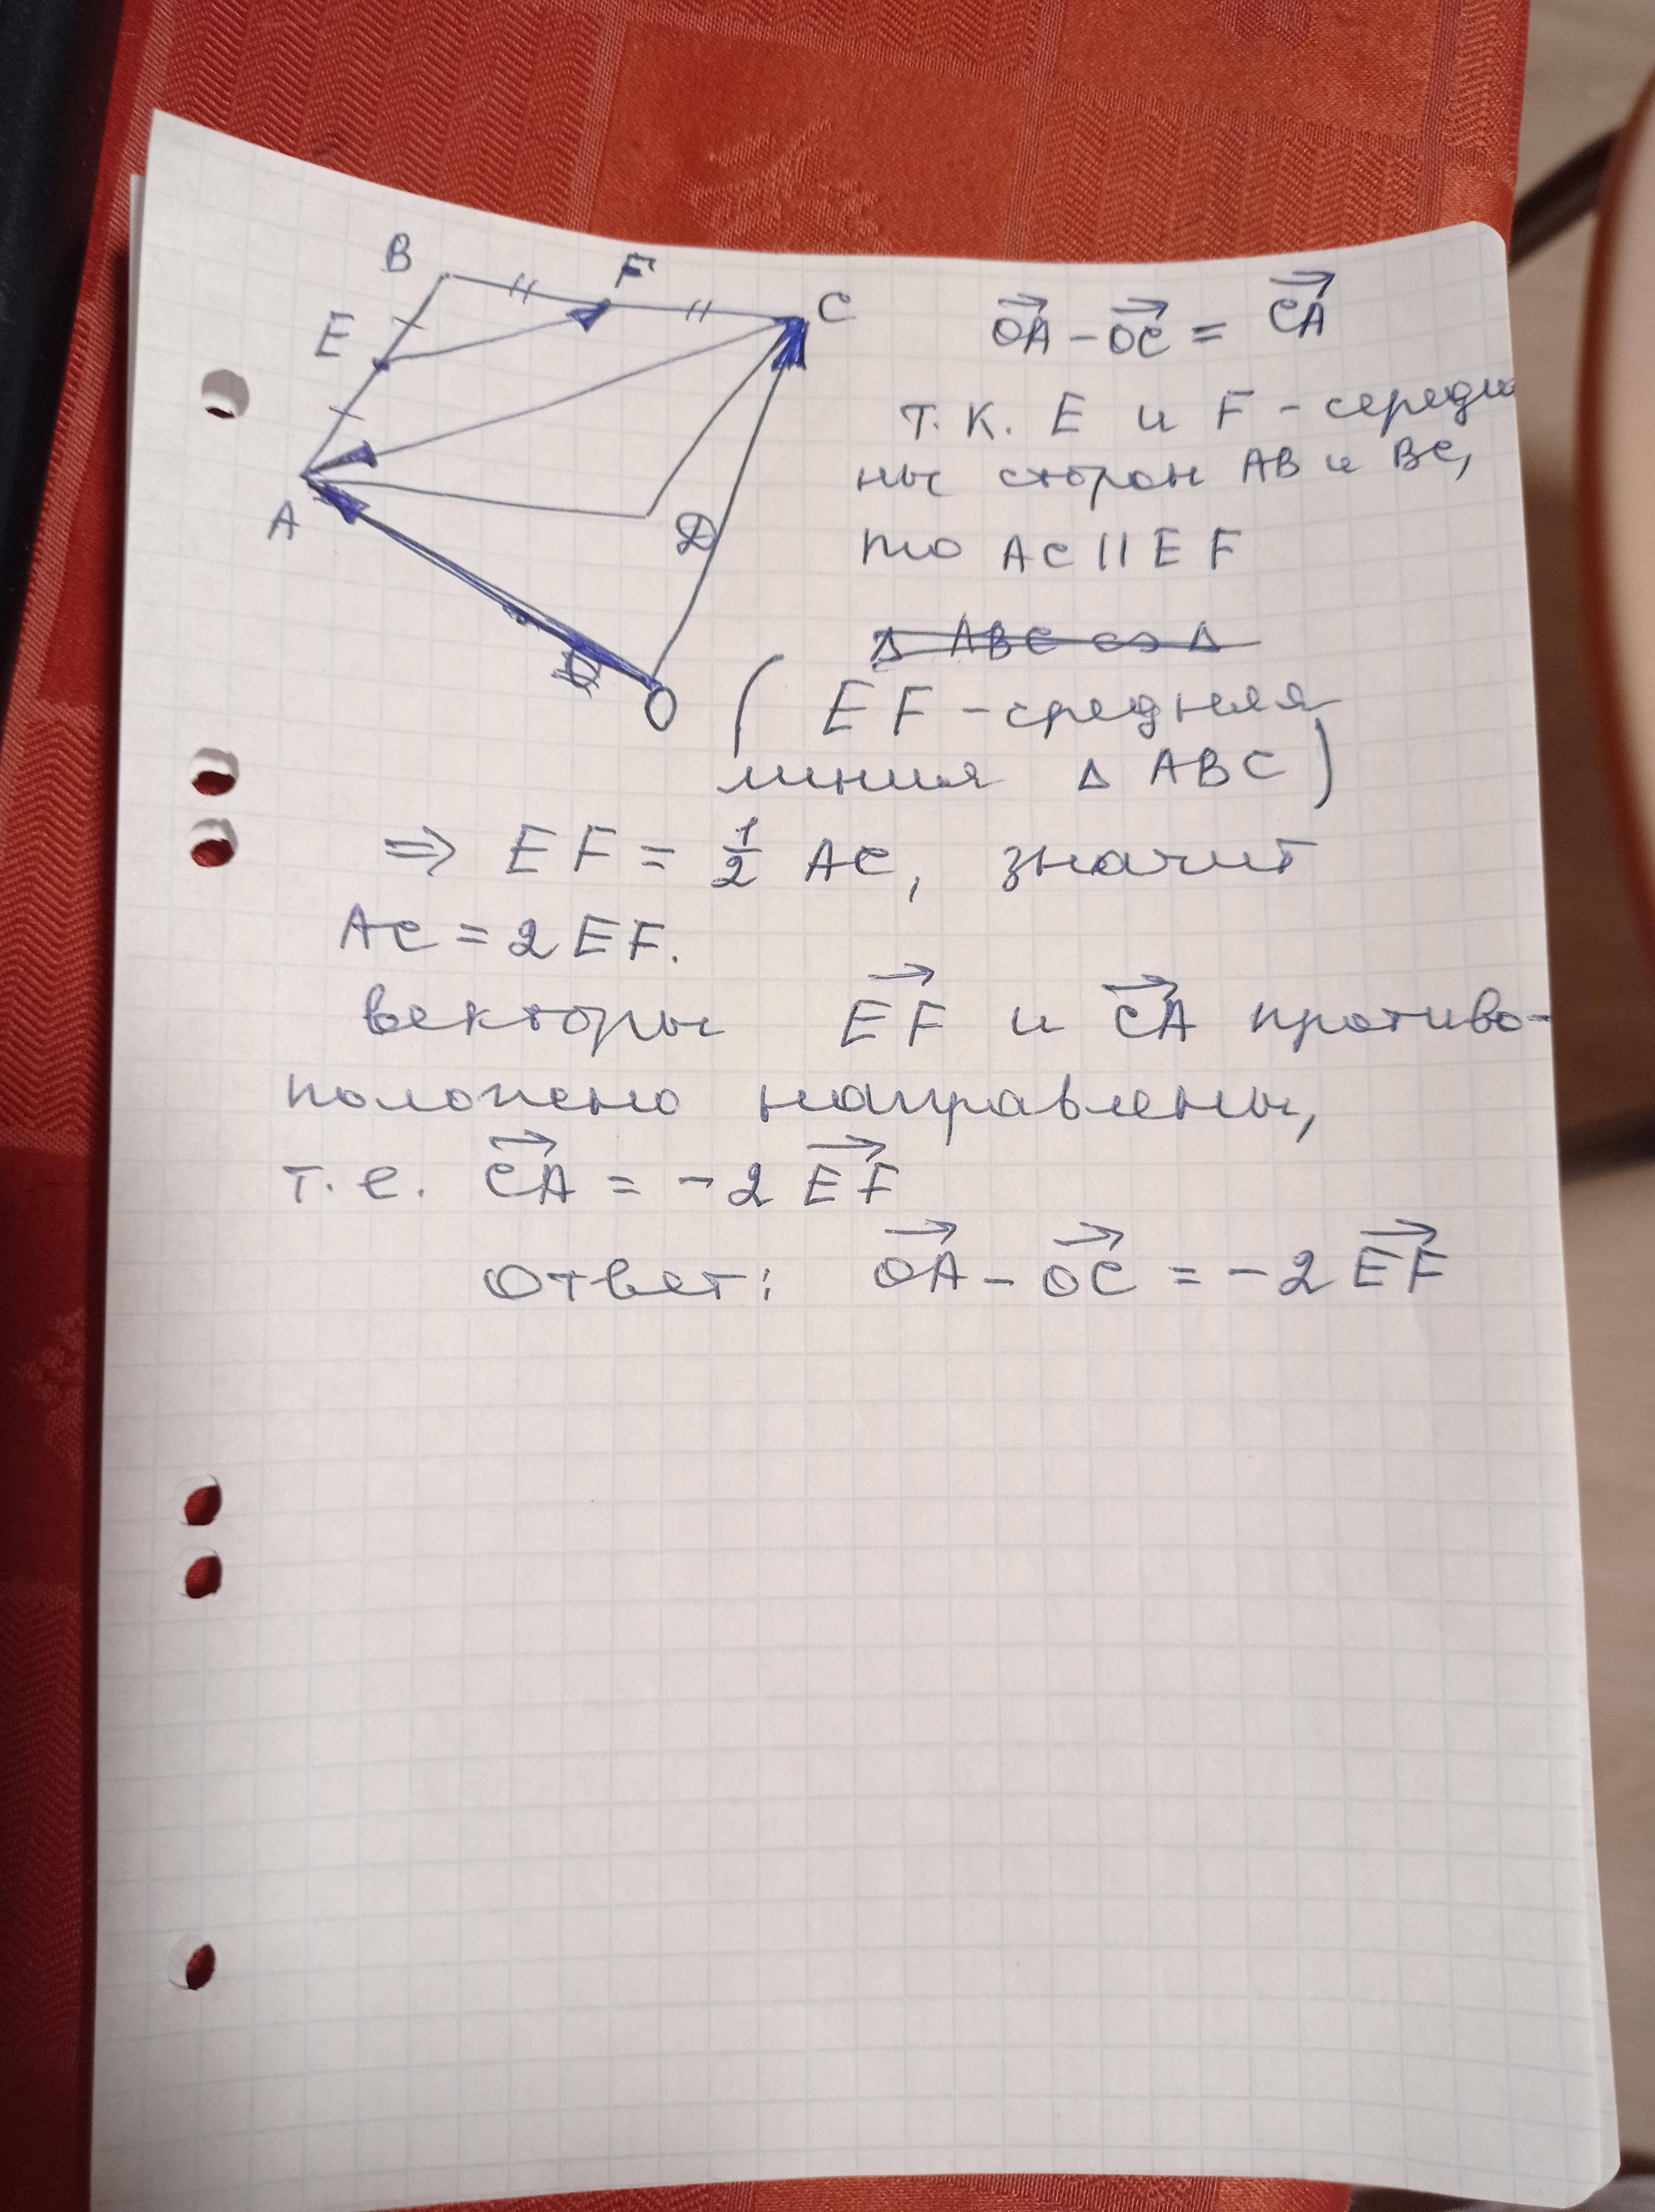 B
F
C
E
A
D
O
OA - OC = CA
т.к. E и F - середи
ны сторон AB и BC,
то AC || EF
Δ ABC ∾ Δ
( EF - средняя
линия Δ ABC )
⇒ EF = 1/2 AC, значит
AC = 2EF.
векторы EF и CA противо-
положено направлены,
т.е. CA = -2 EF
Ответ: OA - OC = -2 EF